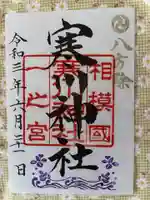 八方除
相模國
寒川神社
一之宮
令和三年六月二十一日